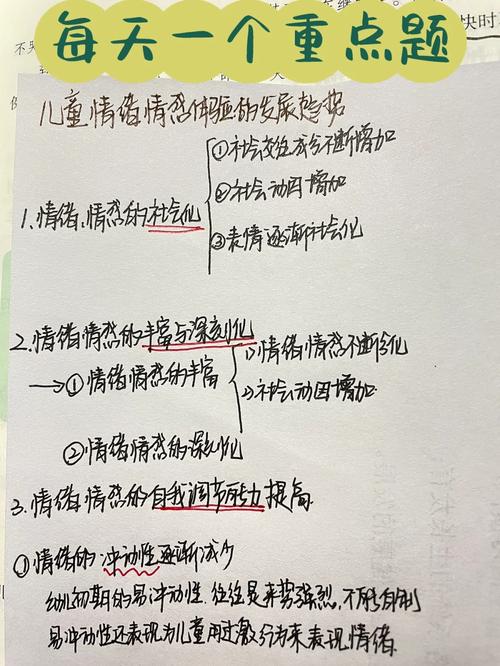 每天一个重点题
儿童情绪情感体验的发展趋势
1.情绪、情感的社会化
①社会交往成分不断增加
②社会动因增加
③表情逐渐社会化
2.情绪情感的丰富与深刻化
→①情绪情感的丰富
1)情绪情感不断分化
2)社会动因增加
②情绪情感的深刻化
3.情绪情感的自我调节能力提高
①情绪的冲动性逐渐减少
幼儿初期的易冲动性,往往是来势强烈,不能自制
易冲动性还表现为儿童用过激行为来表现情绪